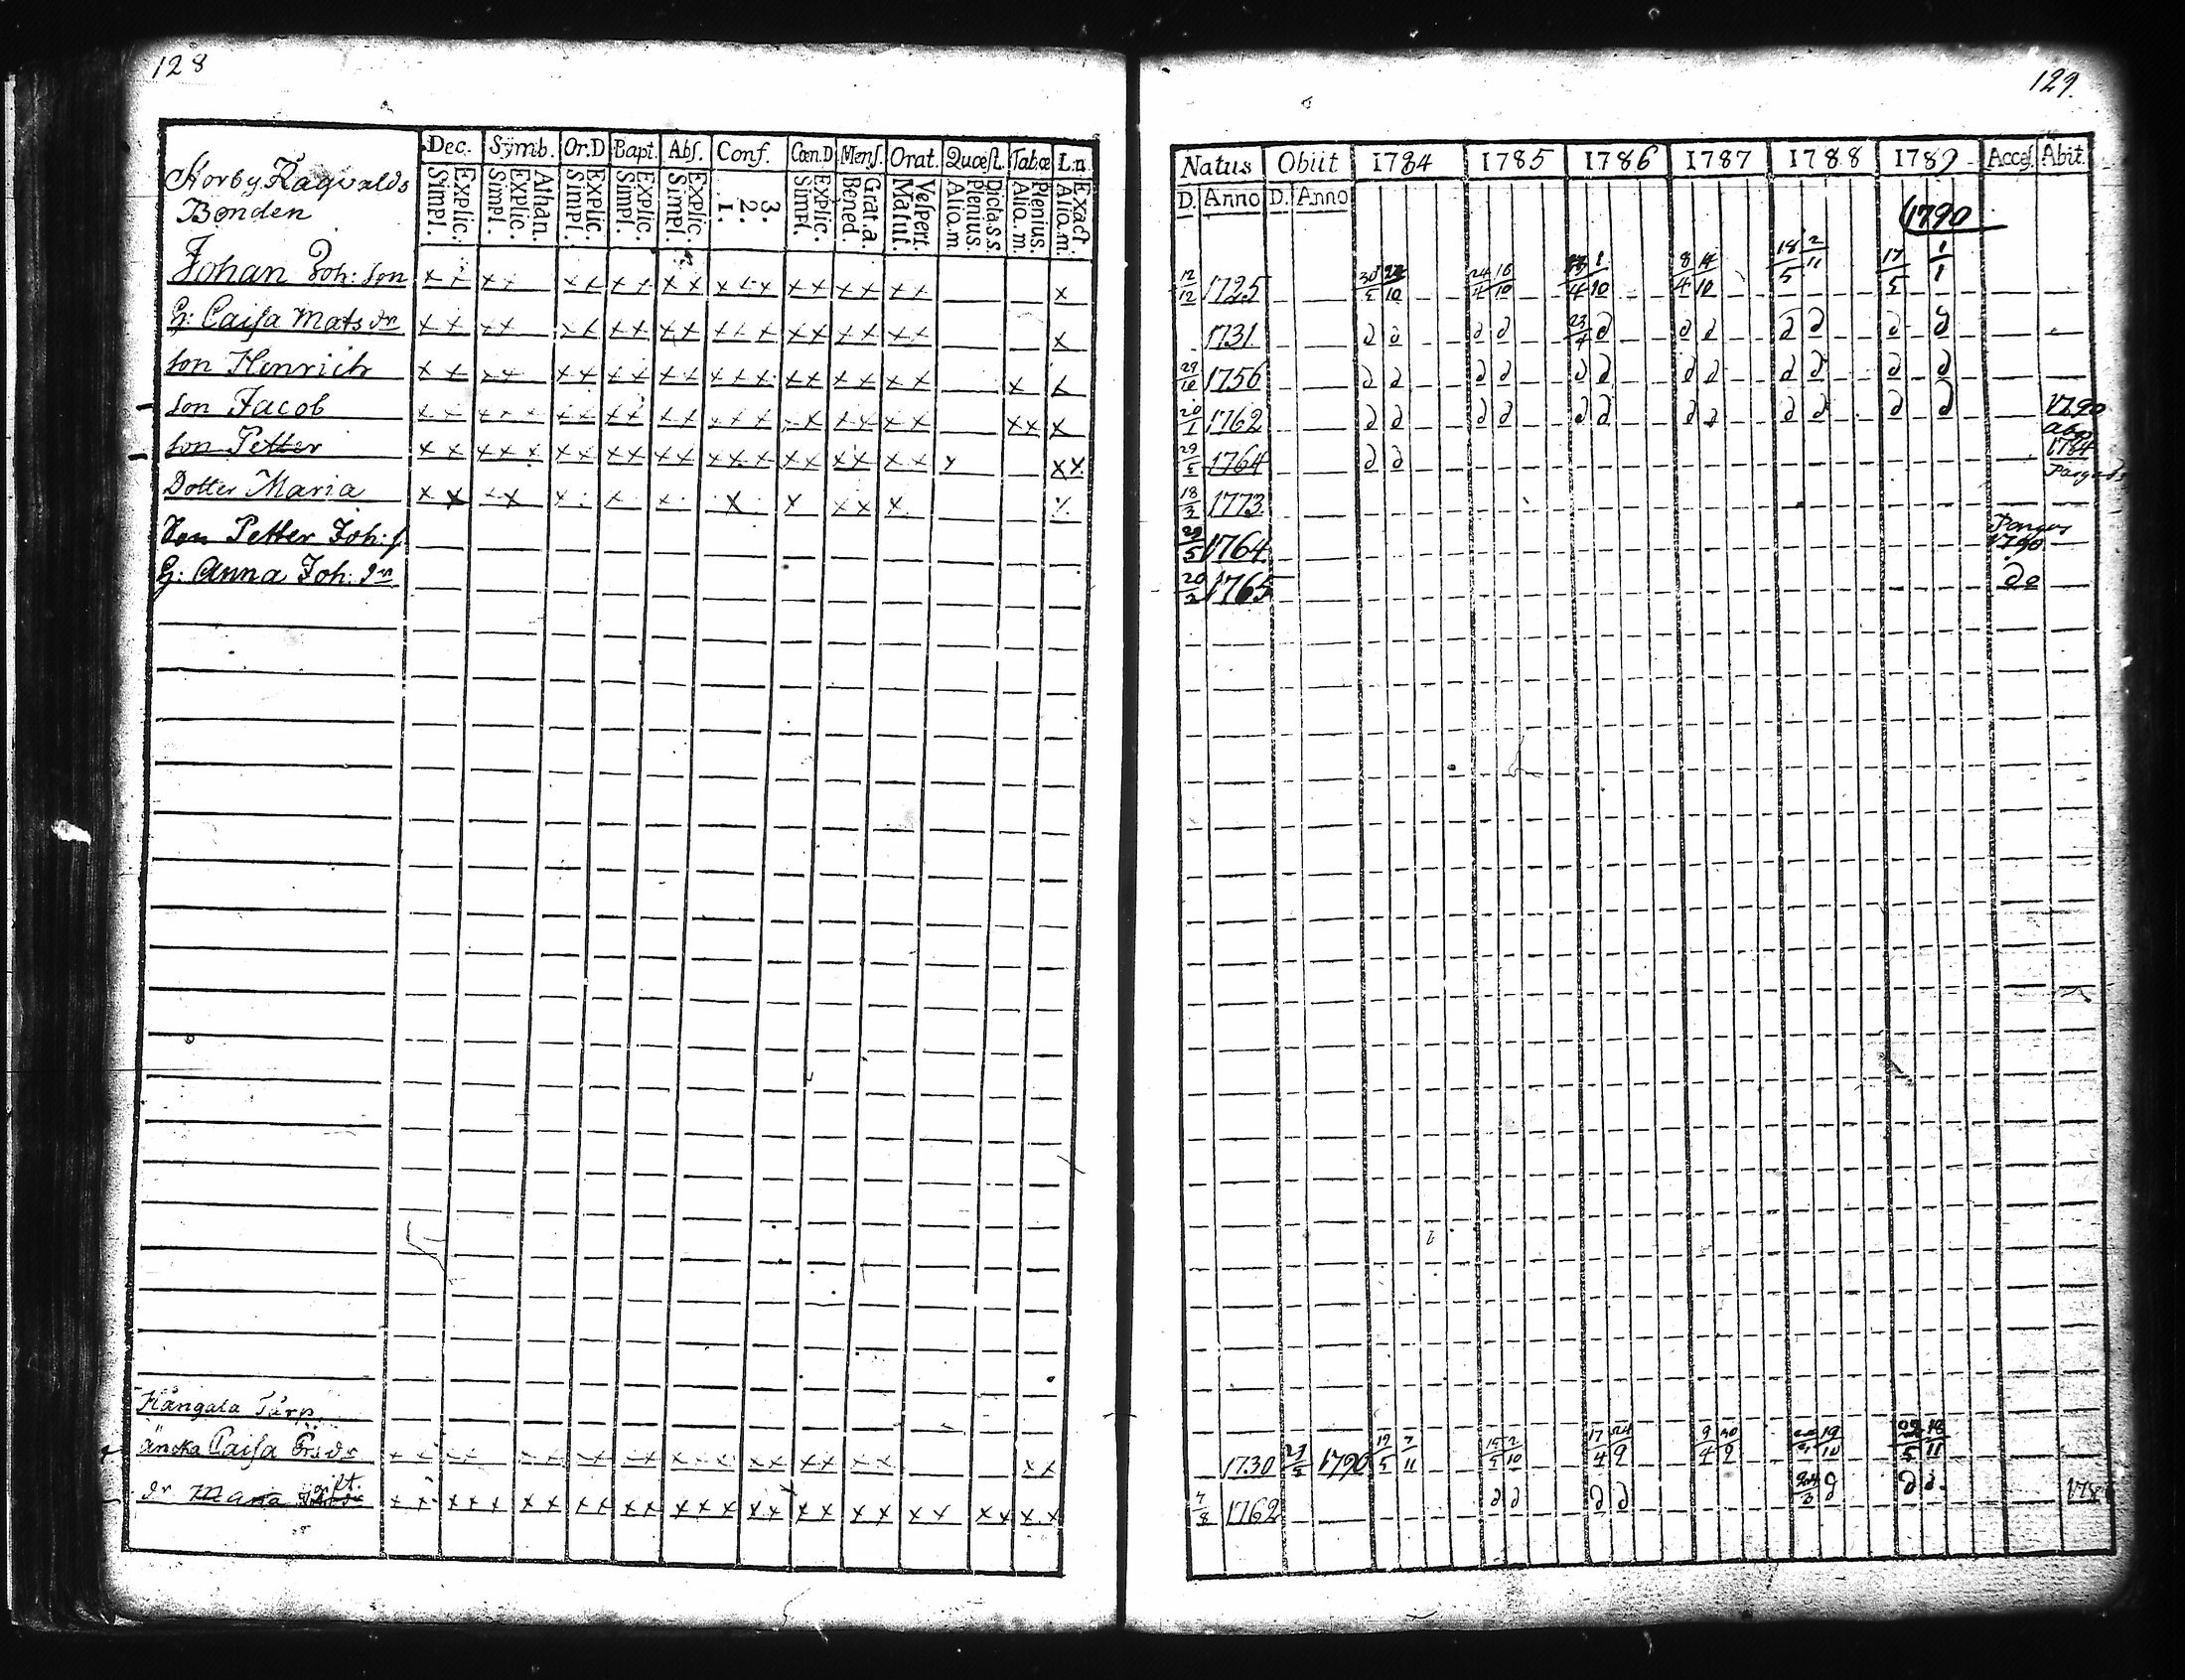 128
Dec. Symb. Or.D Bapt. Abſ. Conf. Cœn.D Menſ. Orat. Quæſt. Tabæ L.n
Norby Ragvalds
Bonden
Simpl. Explic. Simpl. Explic. Athan. Simpl. Explic. Simpl. Explic. Simpl. Explic. 1. 2. 3. Simpl. Explic. Bened. Grat.a. Matut. Veſpert. Alio.m. Plenius. Dicta.s.s. Alio.m. Plenius. Alio.m. Exact.
Johan Joh: ſon x x x x x x x x x x x x x x x x x x x x
H: Caiſa Mats dr x x x x x x x x x x x x x x x x x x x x
Son Henrich x x x x x x x x x x x x x x x x x x x x x
Son Jacob x x x x x x x x x x x x x x x x x x x x x x x x
Son Petter x x x x x x x x x x x x x x x x x x x x x x x
Dotter Maria x x x x x x x x x x x x x
Son Petter Joh: ſ
H: Anna Joh: dr
Hångala Torp
Äncka Caiſa x x x x x x x x x x x x x x x x x x x
dr Maria gift. x x x x x x x x x x x x x x x x x x x x x x x x
129.
Natus Obiit 1784 1785 1786 1787 1788 1789 Acceſ. Abit.
D. Anno D. Anno
1790
12/12 1725 30/5 10 24/4 16/10 4 1/10 8/4 14/10 18/5 2/11 17/5 1/1
1731 d d d d 23/4 d d d d d d d
29/10 1756 d d d d d d d d d d d d
20/1 1762 d d d d d d d d d d d d 1790
29/5 1764 d d 1784
18/3 1773
29/5 1764 1790
20/2 1765 do
1730 1790 19/5 7/11 15/5 2/10 17/4 24/9 9/4 30/9 19/10 5 18/11
7/8 1762 d d d d 24/3 d d d